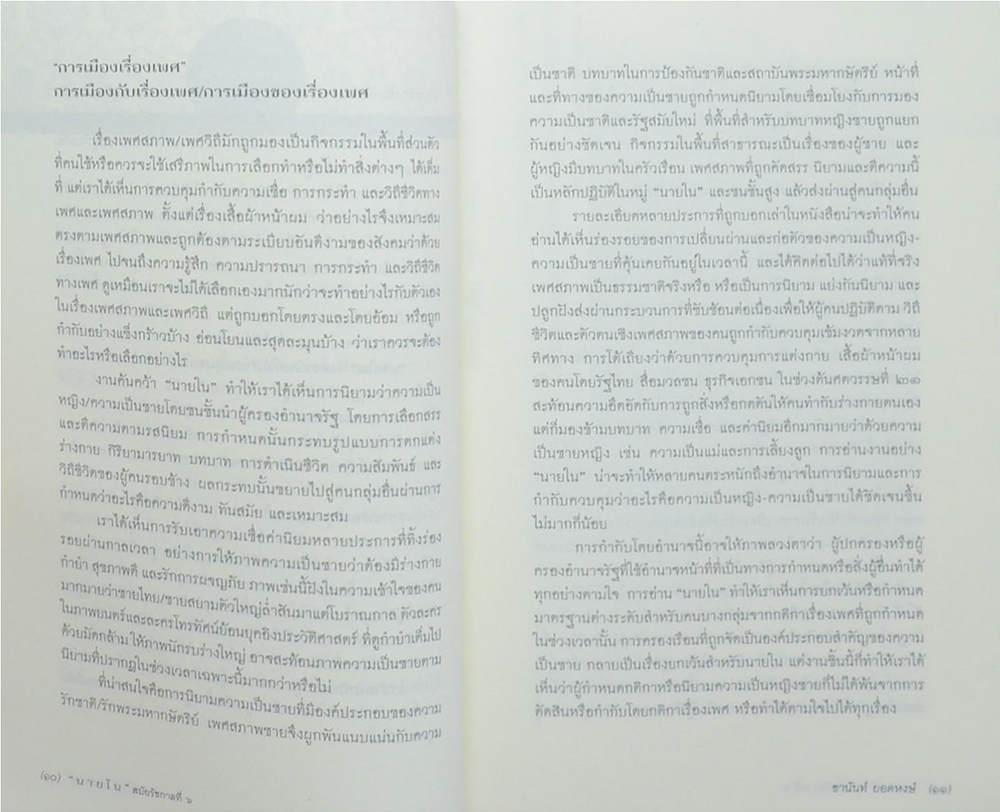 “การเมืองเรื่องเพศ”
การเมืองกับเรื่องเพศ/การเมืองของเรื่องเพศ
เรื่องเพศสภาพ/เพศวิถีมักถูกมองเป็นกิจกรรมในพื้นที่ส่วนตัว
ที่คนใช้หรือควรจะใช้เสรีภาพในการเลือกทำหรือไม่ทำสิ่งต่างๆ ได้เต็ม
ที่ แต่เราได้เห็นการควบคุมกำกับความเชื่อ การกระทำ และวิถีชีวิตทาง
เพศและเพศสภาพ ตั้งแต่เรื่องเสื้อผ้าหน้าผม ว่าอย่างไรจึงเหมาะสม
ตรงตามเพศสภาพและถูกต้องตามระเบียบอันดีงามของสังคมว่าด้วย
เรื่องเพศ ไปจนถึงความรู้สึก ความปรารถนา การกระทำ และวิถีชีวิต
ทางเพศ ดูเหมือนเราจะไม่ได้เลือกเองมากนักว่าจะทำอย่างไรกับตัวเอง
ในเรื่องเพศสภาพและเพศวิถี แต่ถูกบอกโดยตรงและโดยอ้อม หรือถูก
กำกับอย่างแข็งกร้าวบ้าง อ่อนโยนและสุดละมุนบ้าง ว่าเราควรจะต้อง
ทำอะไรหรือเลือกอย่างไร
งานค้นคว้า “นายใน” ทำให้เราได้เห็นการนิยามว่าความเป็น
หญิง/ความเป็นชายโดยชนชั้นนำผู้ครองอำนาจรัฐ โดยการเลือกสรร
และตีความตามรสนิยม การกำหนดนั้นกระทบรูปแบบการตกแต่ง
ร่างกาย กิริยามารยาท บทบาท การดำเนินชีวิต ความสัมพันธ์ และ
วิถีชีวิตของผู้คนรอบข้าง ผลกระทบนั้นขยายไปสู่คนกลุ่มอื่นผ่านการ
กำหนดว่าอะไรคือความดีงาม ทันสมัย และเหมาะสม
เราได้เห็นการรับเอาความเชื่อค่านิยมหลายประการที่ทิ้งร่อง
รอยผ่านกาลเวลา อย่างการให้ภาพความเป็นชายว่าต้องมีร่างกาย
กำยำ สุขภาพดี และรักการผจญภัย ภาพเช่นนี้ฝังในความเข้าใจของคน
มากมายว่าชายไทย/ชายสยามตัวใหญ่ล่ำสันมาแต่โบราณกาล ตัวละคร
ในภาพยนตร์และละครโทรทัศน์ย้อนยุคอิงประวัติศาสตร์ ที่ดูกำยำเต็มไป
ด้วยมัดกล้าม ให้ภาพนักรบร่างใหญ่ อาจสะท้อนภาพความเป็นชายตาม
นิยามที่ปรากฏในช่วงเวลาเฉพาะนี้มากกว่าหรือไม่
ที่น่าสนใจคือการนิยามความเป็นชายที่มีองค์ประกอบของความ
รักชาติ/รักพระมหากษัตริย์ เพศสภาพชายจึงผูกพันแนบแน่นกับความ
(๑๐) “นายใน” สมัยรัชกาลที่ ๖
เป็นชาติ บทบาทในการป้องกันชาติและสถาบันพระมหากษัตริย์ หน้าที่
และที่ทางของความเป็นชายถูกกำหนดนิยามโดยเชื่อมโยงกับการมอง
ความเป็นชาติและรัฐสมัยใหม่ ที่พื้นที่สำหรับบทบาทหญิงชายถูกแยก
กันอย่างชัดเจน กิจกรรมในพื้นที่สาธารณะเป็นเรื่องของผู้ชาย และ
ผู้หญิงมีบทบาทในครัวเรือน เพศสภาพที่ถูกคัดสรร นิยามและตีความนี้
เป็นหลักปฏิบัติในหมู่ “นายใน” และชนชั้นสูง แล้วส่งผ่านสู่คนกลุ่มอื่น
รายละเอียดหลายประการที่ถูกบอกเล่าในหนังสือน่าจะทำให้คน
อ่านได้เห็นร่องรอยของการเปลี่ยนผ่านและก่อตัวของความเป็นหญิง-
ความเป็นชายที่คุ้นเคยกันอยู่ในเวลานี้ และได้คิดต่อไปได้ว่าแท้ที่จริง
เพศสภาพเป็นธรรมชาติจริงหรือ หรือเป็นการนิยาม แย่งกันนิยาม และ
ปลูกฝังส่งผ่านกระบวนการที่ซับซ้อนต่อเนื่องเพื่อให้ผู้คนปฏิบัติตาม วิถี
ชีวิตและตัวตนเชิงเพศสภาพของคนถูกกำกับควบคุมเข้มงวดจากหลาย
ทิศทาง การโต้เถียงว่าด้วยการควบคุมการแต่งกาย เสื้อผ้าหน้าผม
ของคนโดยรัฐไทย สื่อมวลชน ธุรกิจเอกชน ในช่วงต้นศตวรรษที่ ๒๐๑
สะท้อนความอึดอัดกับการถูกสั่งหรือกดดันให้คนทำกับร่างกายตนเอง
แต่ก็มองข้ามบทบาท ความเชื่อ และค่านิยมอีกมากมายว่าด้วยความ
เป็นชายหญิง เช่น ความเป็นแม่และการเลี้ยงลูก การอ่านงานอย่าง
“นายใน” น่าจะทำให้หลายคนตระหนักถึงอำนาจในการนิยามและการ
กำกับควบคุมว่าอะไรคือความเป็นหญิง-ความเป็นชายได้ชัดเจนขึ้น
ไม่มากก็น้อย
การกำกับโดยอำนาจนี้อาจให้ภาพลวงตาว่า ผู้ปกครองหรือผู้
ครองอำนาจรัฐที่ใช้อำนาจหน้าที่ที่เป็นทางการกำหนดหรือสั่งผู้อื่นทำได้
ทุกอย่างตามใจ การอ่าน “นายใน” ทำให้เราเห็นการยกเว้นหรือกำหนด
มาตรฐานต่างระดับสำหรับคนบางกลุ่มจากกติกาเรื่องเพศที่ถูกกำหนด
ในช่วงเวลานั้น การครองเรือนที่ถูกจัดเป็นองค์ประกอบสำคัญของความ
เป็นชาย กลายเป็นเรื่องยกเว้นสำหรับนายใน แต่งานชิ้นนี้ก็ทำให้เราได้
เห็นว่าผู้กำหนดกติกาหรือนิยามความเป็นหญิงชายก็ไม่ได้พ้นจากการ
ตัดสินหรือกำกับโดยกติกาเรื่องเพศ หรือทำได้ตามใจไปได้ทุกเรื่อง
ชานันท์ ยอดหงษ์ (๑๑)